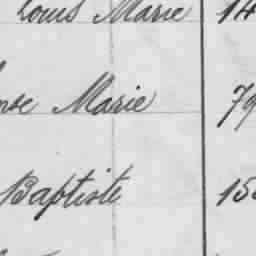 Louis Marie 14
Marie 79
Baptiste 15